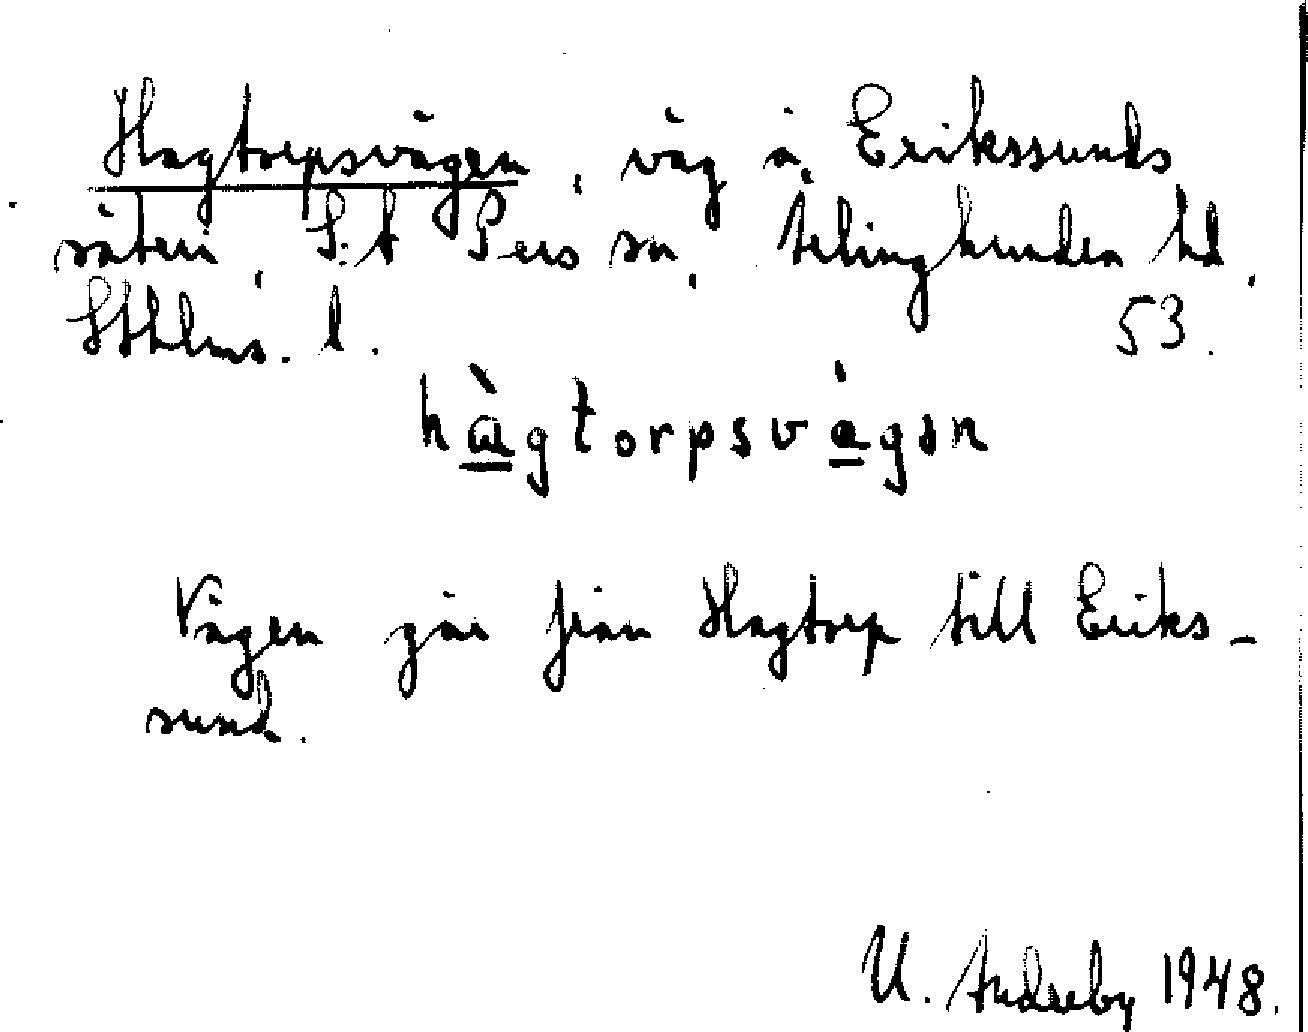 Hagtorpsvägen, väg å Erikssunds
säteri, S:t Pers sn, Ärlinghundra hd,
Sthlms. l. 53.
hàgtorpsvágən
Vägen går från Hagtorp till Eriks-
sund.
U. 1948.